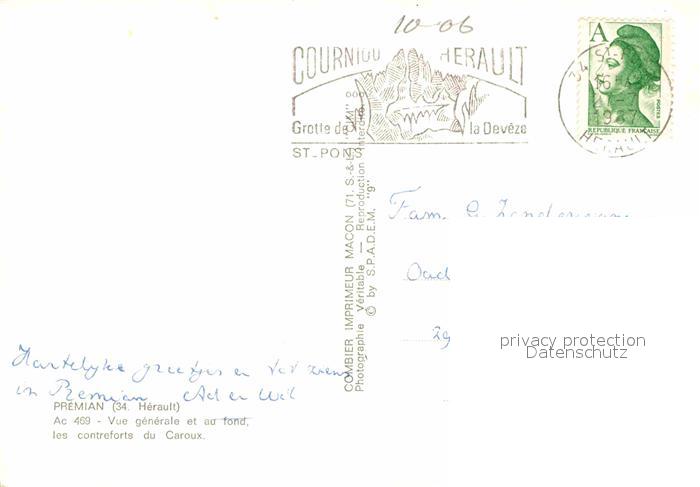 10-06
COURNIOU HERAULT
Grotte de la Devèze
ST-PONS
A
34 ST-
16
1987
HERAULT
POSTES
REPUBLIQUE FRANÇAISE
COMBIER IMPRIMEUR MACON (71. S.-&-L.) "CIM"
Photographie Véritable — Reproduction interdite
© by S.P.A.D.E.M. "9"
Fam.
Oud
29
privacy protection
Datenschutz
Hartelijke groetjes en
in Prémian Ad en Wil
PRÉMIAN (34. Hérault)
Ac 469 - Vue générale et au fond,
les contreforts du Caroux.